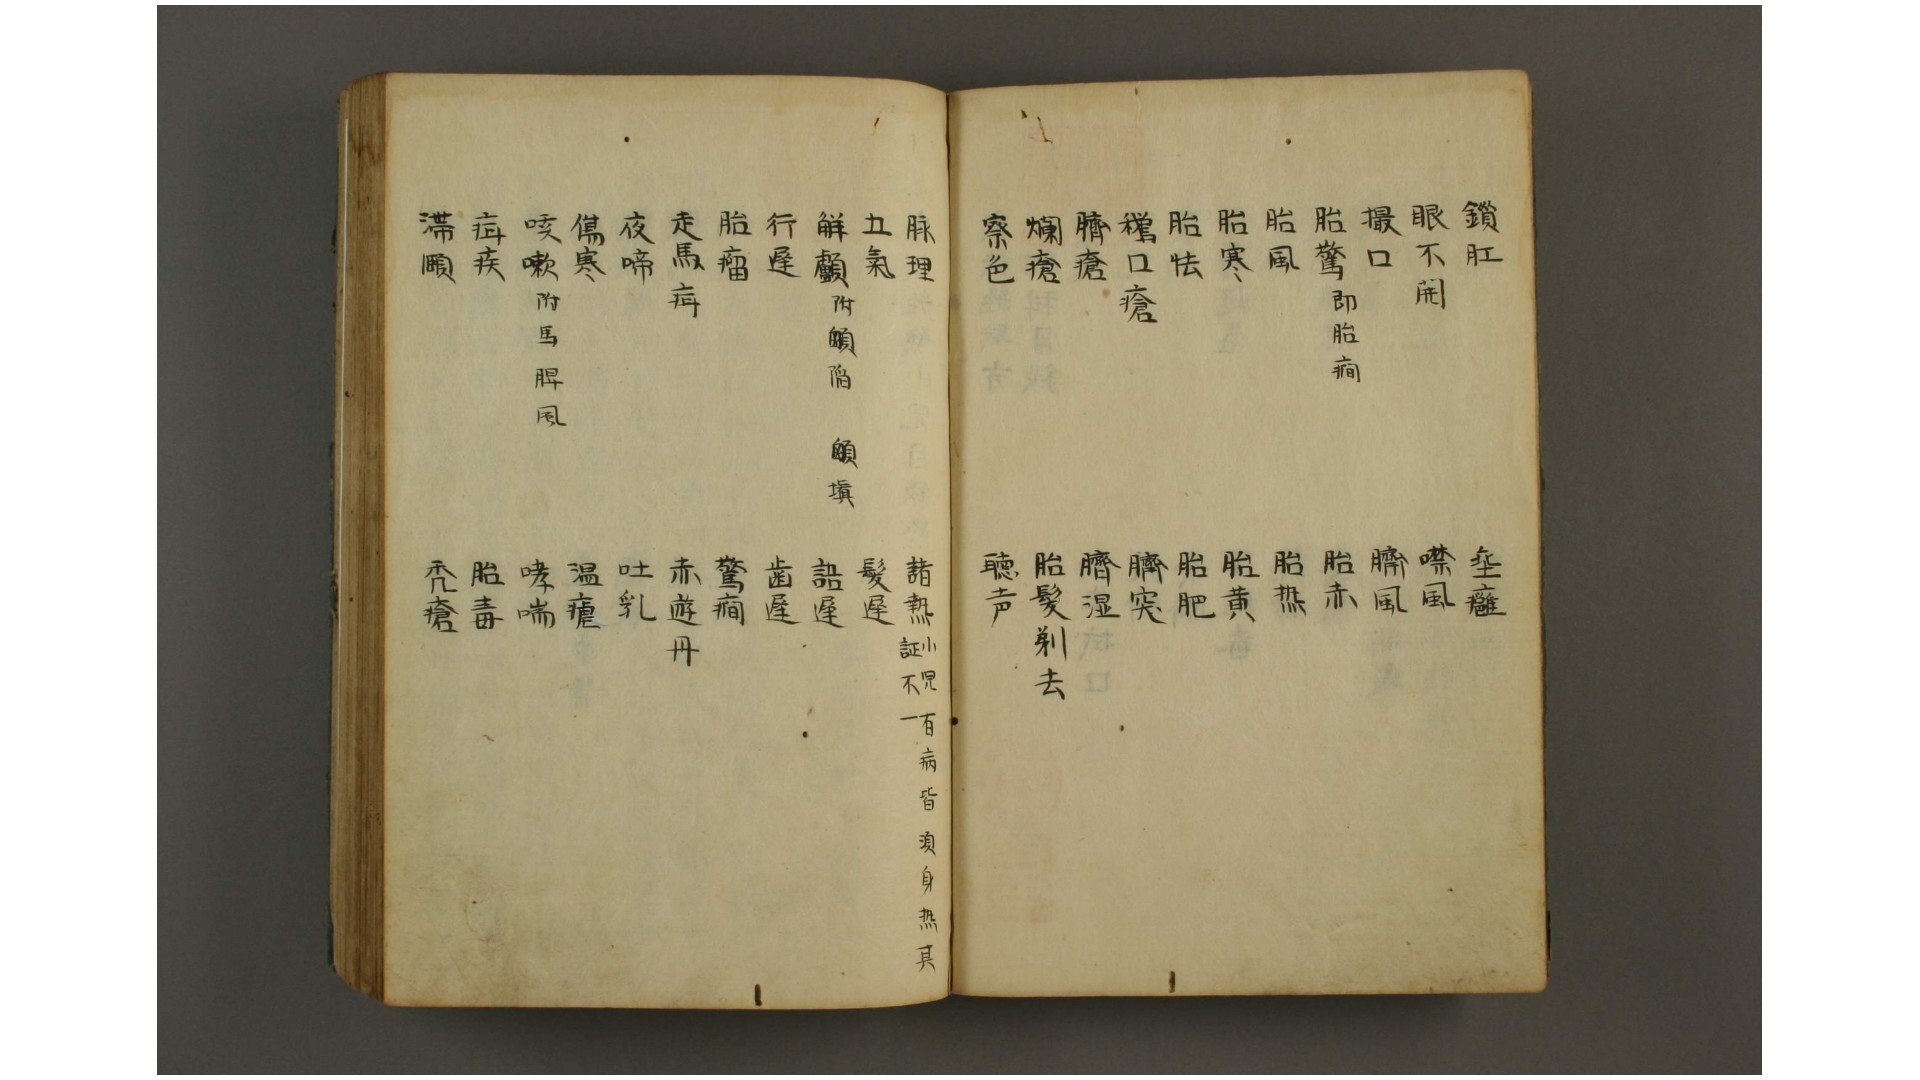 鎖肛 垂癰
眼不開 噤風
撮口 臍風
胎驚 即胎癇 胎赤
胎風 胎热
胎寒 胎黄
胎怯 胎肥
鵞口瘡 臍突
臍瘡 臍湿
爛瘡 胎髪剃去
察色 聴声
脉理 諸熱 小児百病皆須身热其証不一
五氣 髪遅
解顱 附顖陥 顖塡 語遅
行遅 歯遅
胎瘤 驚癇
走馬疳 赤遊丹
夜啼 吐乳
傷寒 温瘧
咳嗽 附馬脾風 哮喘
疳疾 胎毒
滞頤 禿瘡